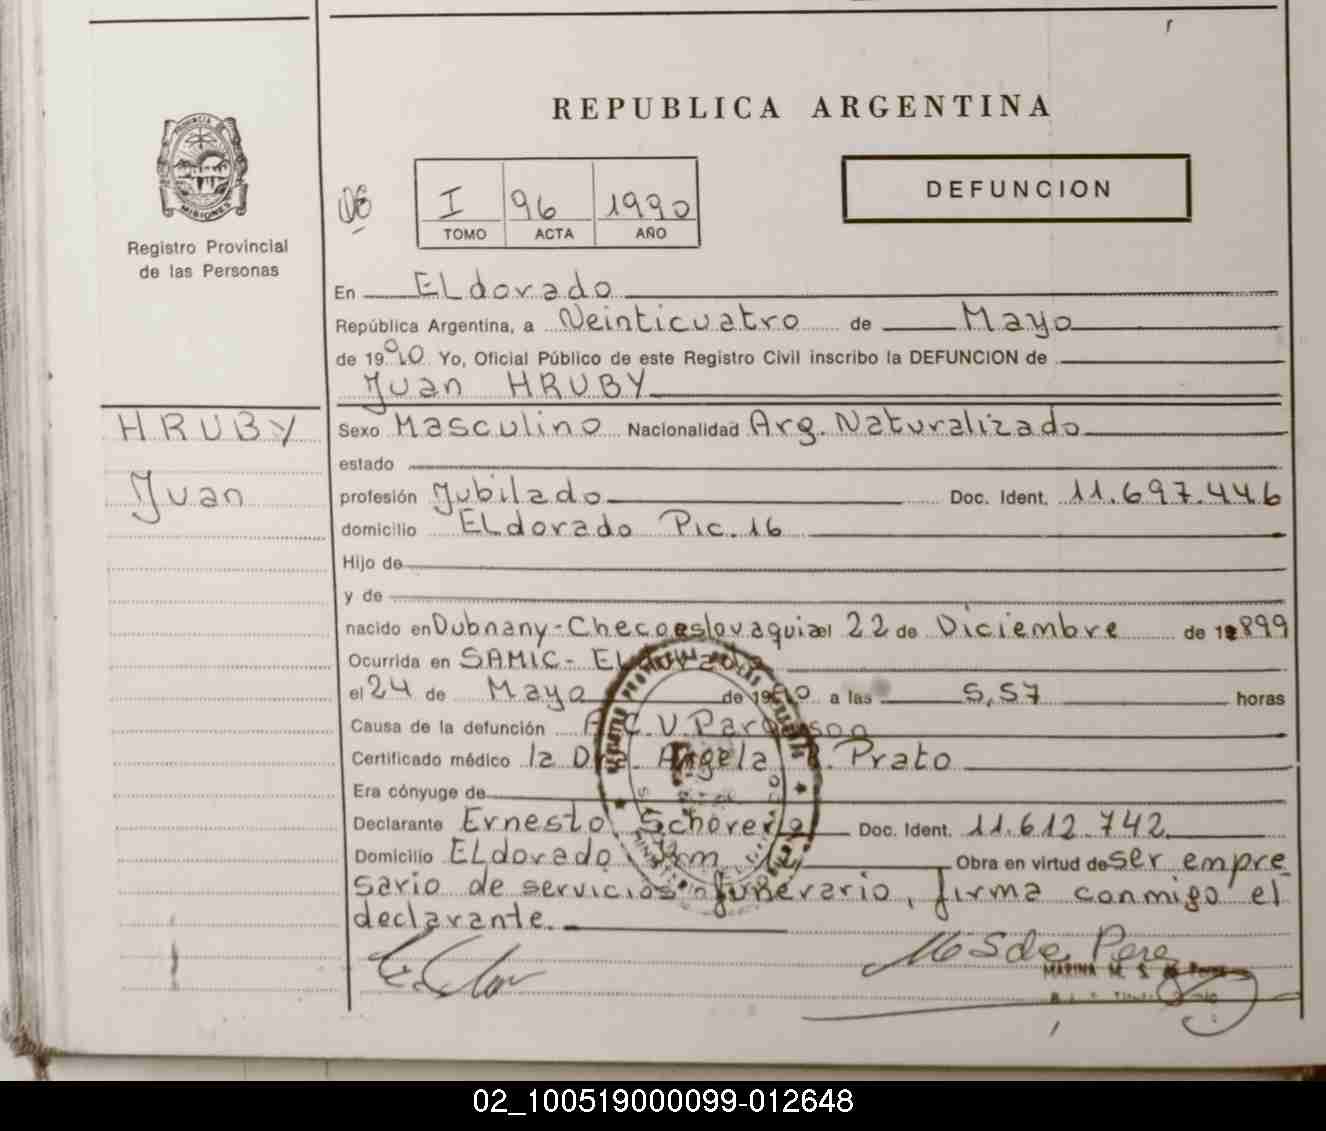 REPUBLICA ARGENTINA
PROVINCIA DE
MISIONES
Registro Provincial
de las Personas
I 96 1990
TOMO ACTA AÑO
DEFUNCION
En ELdorado
República Argentina, a Veinticuatro de Mayo
de 1990 Yo, Oficial Público de este Registro Civil inscribo la DEFUNCION de
Juan HRUBY
HRUBY
Juan
Sexo Masculino Nacionalidad Arg. Naturalizado
estado
profesión Jubilado Doc. Ident. 11.697.446
domicilio ELdorado Pic. 16
Hijo de
y de
nacido en Dubnany-Checoeslovaquia el 22 de Diciembre de 1899
Ocurrida en SAMIC- ELdorado
el 24 de Mayo de 1990 a las 5,57 horas
Causa de la defunción A.C.V. Parkinson
Certificado médico la Dra. Angela Prato
Era cónyuge de
Declarante Ernesto Doc. Ident. 11.612.742
Domicilio ELdorado Km Obra en virtud de ser empre
sario de servicios funerario, firma conmigo el
declarante.
MS de Perez
MARINA M. S. de Perez
02_100519000099-012648